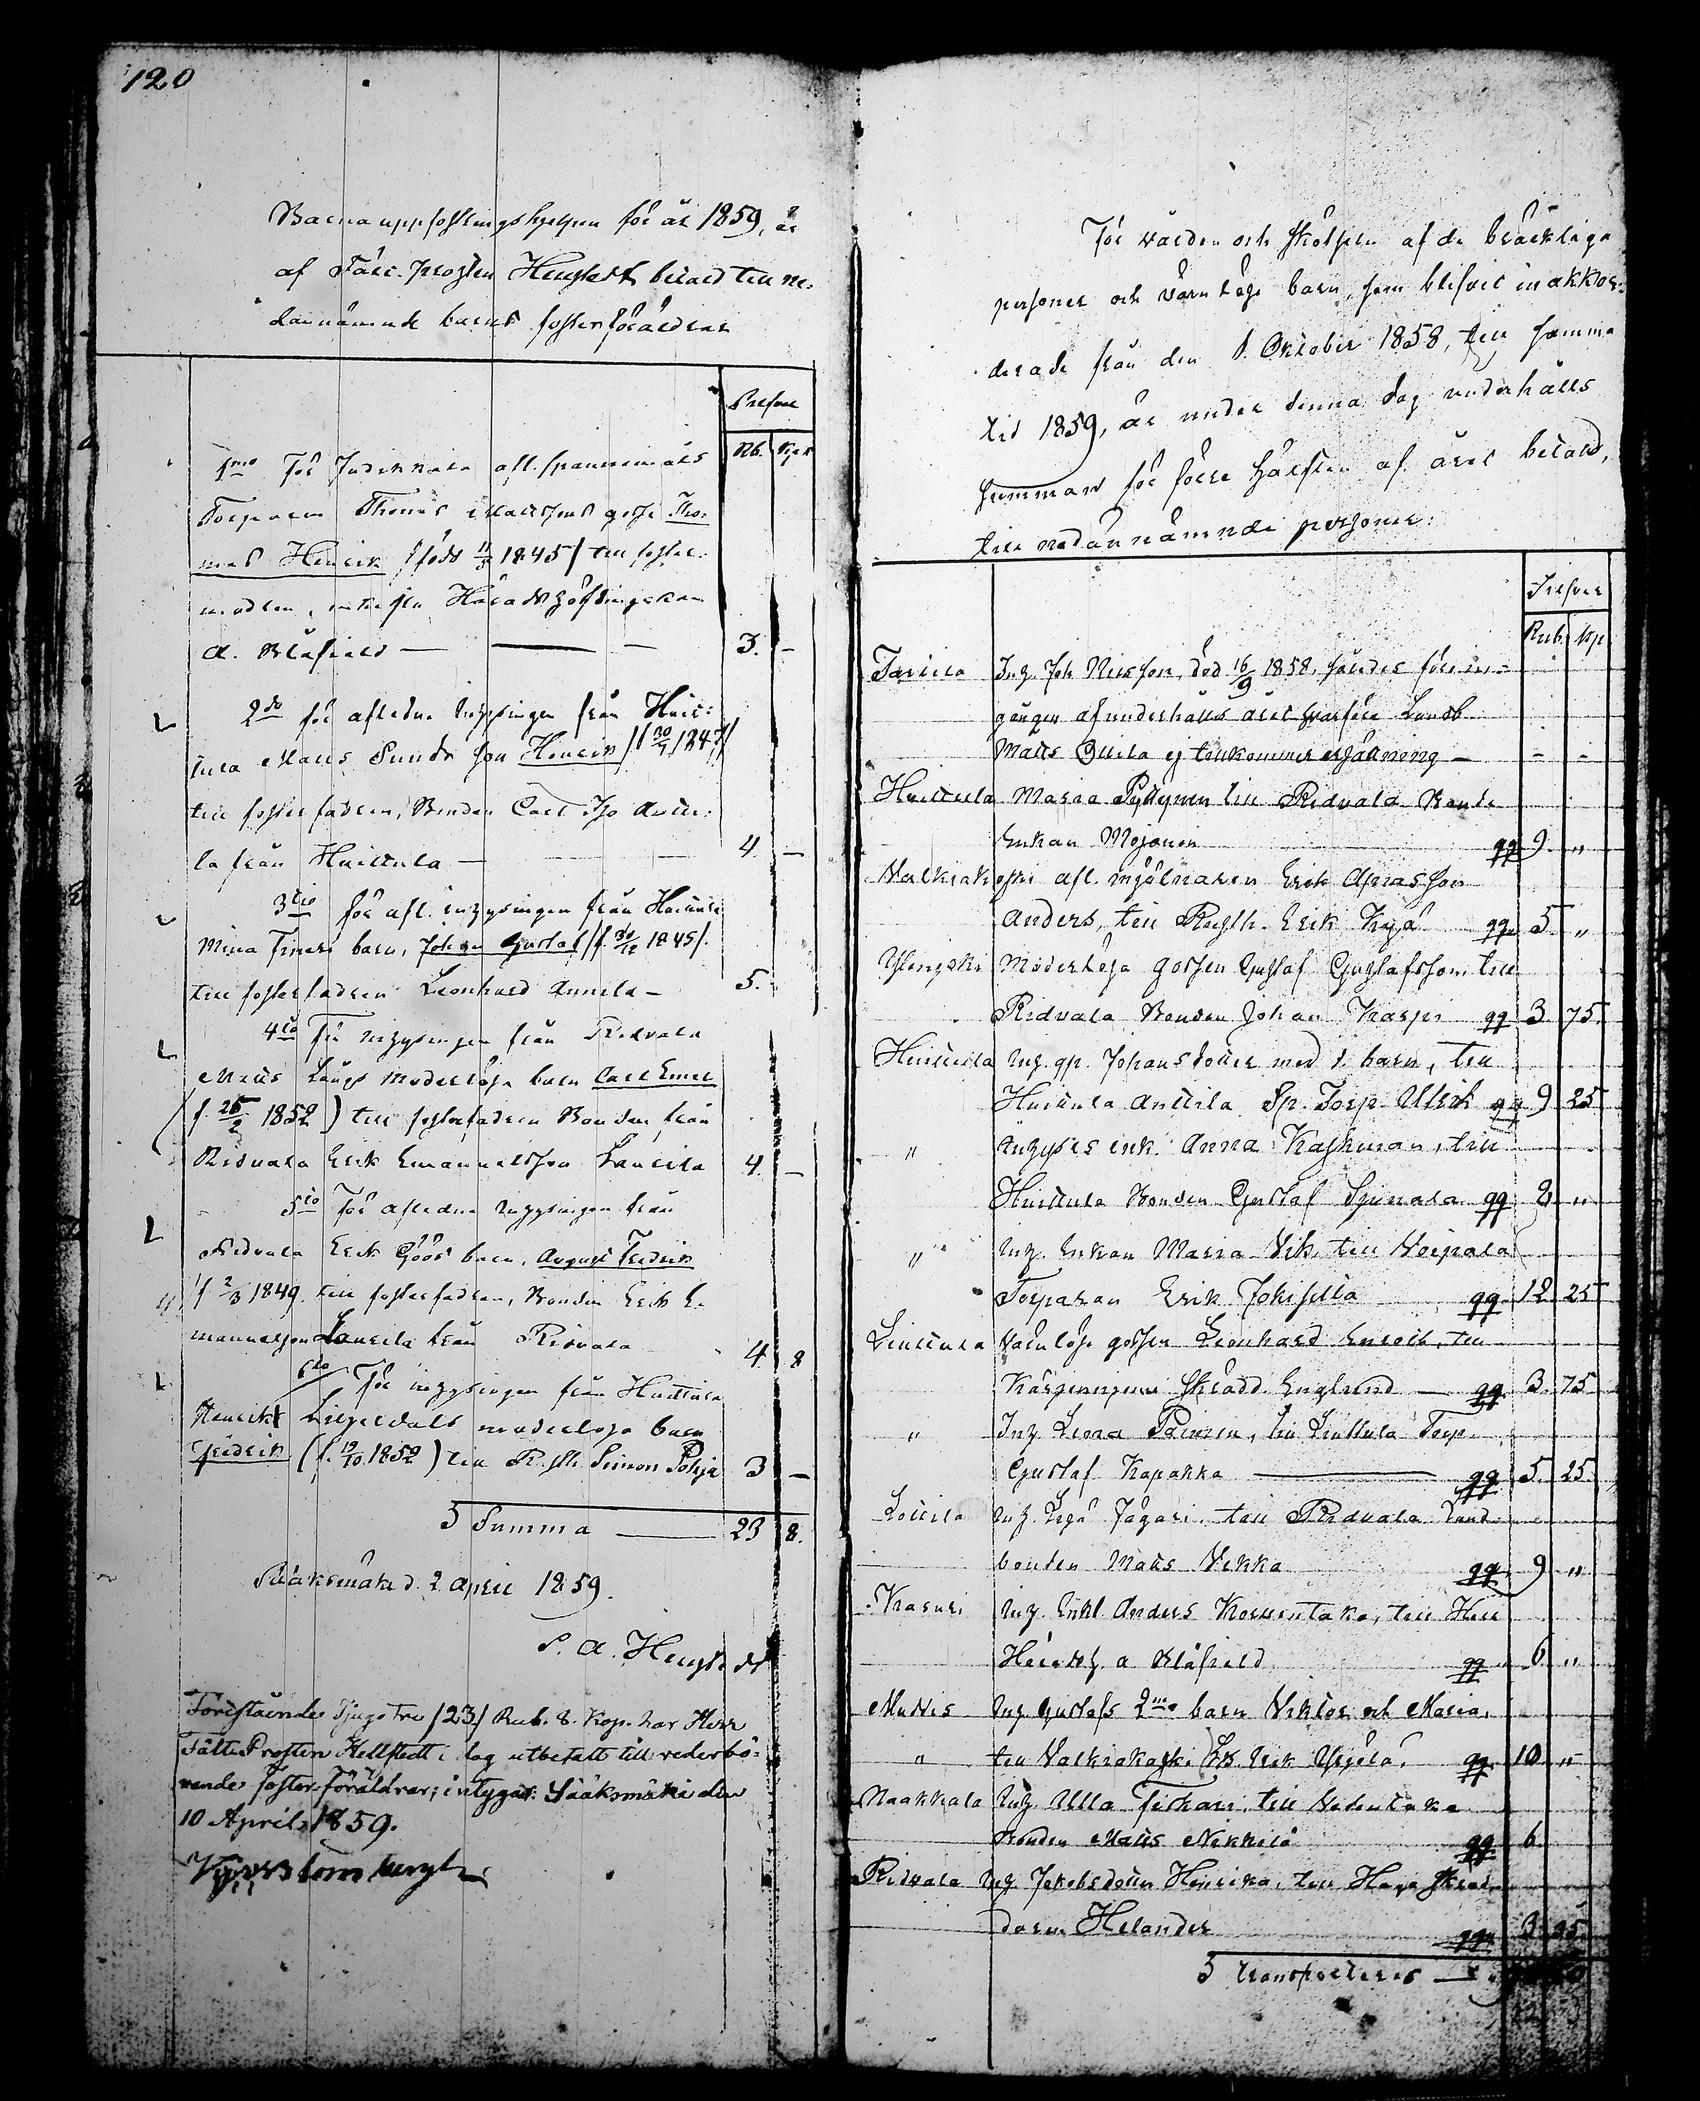 120
Barnauppfostringshjelpen för år 1859, är
af Fält-Prosten Hellstedt betald till ne-
dannämnde barns fosterföräldrar
Silfver
Rb. Kop
1mo För Judikkala afl. spannemåls
Torparen Thomas Mattsons gosse Tho-
mas Henrik /född 11/3 1845/ till foster-
modren, enkefru Häradshöfdingskan
A. Blåfield — 3. —
2do för aflidne inhysingen från Huit-
tula Matts Sunds son Henrik /f 30/7 1847/
till fosterfadren, Bonden Carl Antti-
la från Huittula — 4 —
3tio för afl. inhysingen från Huittula
Mina barn, Johan Gustaf /f. 30/12 1845/.
till fosterfadren Leonhard Annila — 5.
4to För inhysingen från Ridvala
Matts Långs moderlösa barn Carl Emel
(f. 25/2 1852) till fosterfadren Bonden från
Ridvala Erik Emanuelsson Laurila 4 —
5to För aflidne inhysingen från
Ridvala Erik Göös barn, August Fredrik
f 2/3 1849. till fosterfadren, Bonden Erik E-
manuelson Laurila från Ridvala 4. 8
6to För inhysingen från Huittula
Henrik Liljerdals moderlösa barn
Fredrik (f. 19/10 1852) till R.sth. Simon Pohja 3 —
S Summa — 23 8.
Sääksmäki d. 2 April 1859.
S. A. Hellstedt
Förestående Tjugotre /23/ Rub. 8. Kop. har Herr
Fält-Prosten Hellstedt i dag utbetalt till vederbö-
rande foster-föräldrar; intygar: Sääksmäki den
10 April 1859.
För vården och skötseln af de bräckliga
personer och värnlösa barn, som blifvit inakkor-
derade från den 1 Oktober 1858, till samma
tid 1859, är under denna dag underhålls
summan för förra hälften af året betald,
till nedannämnde personer:
Silfver
Rub. Kp.
Tarttila Inh. Joh Nilsson, död 16/9 1858, således före in-
gången af underhålls året hvarföre Landb.
Matts Ollila ej tillkommer ersättning — - -
Huittula Maria Pyttynen till Ridvala Bonde
Enkan Mojanen qq 9 "
Valkiakoski afl. mjölnaren Erik
Anders, till Rusth. Erik Kyjä qq 5 "
Moderlösa gossen Gustaf Gustafsson, till
Ridvala Bonden Johan Karpi qq 3 75
Huittula Inh. gp. Johansdotter med 1 barn, till
Huittula Anttila Sp. Torp. Ulrik qq 9 25
" Inhyses enk. Anna Kaskinen, till
Huittula Bonden Gustaf qq 2 "
" Inh. Enkan Maria Vik, till Voipala
Torparen Erik Jokisilla qq 12 25
Linttula Värnlösa gossen Leonhard Enroth, till
skrädd. Englund — qq 3 75
" Inh. Lena , till Linttula Torp.
Gustaf Kapakka — qq 5 25
Lottila Inh. Jägari till Ridvala Land
bonden Matts Vekka qq 9 "
Kaskuri Inh. Enkl. Anders Korventaka, till Herr
Häradsh. A Blåfield qq 6 "
Mattis Inh. Gustafs 2ne barn Viktor och Maria,
" till Valkiakoski Erik qq 10 "
Naakkala Inh. Ulla , till Vedentaka
Bonden Matts Nikkilä qq 6
Ridvala Inh. Jakobsdotter Henrika, till Haga skräd-
daren Helander qq 3 25
S Transporteres —